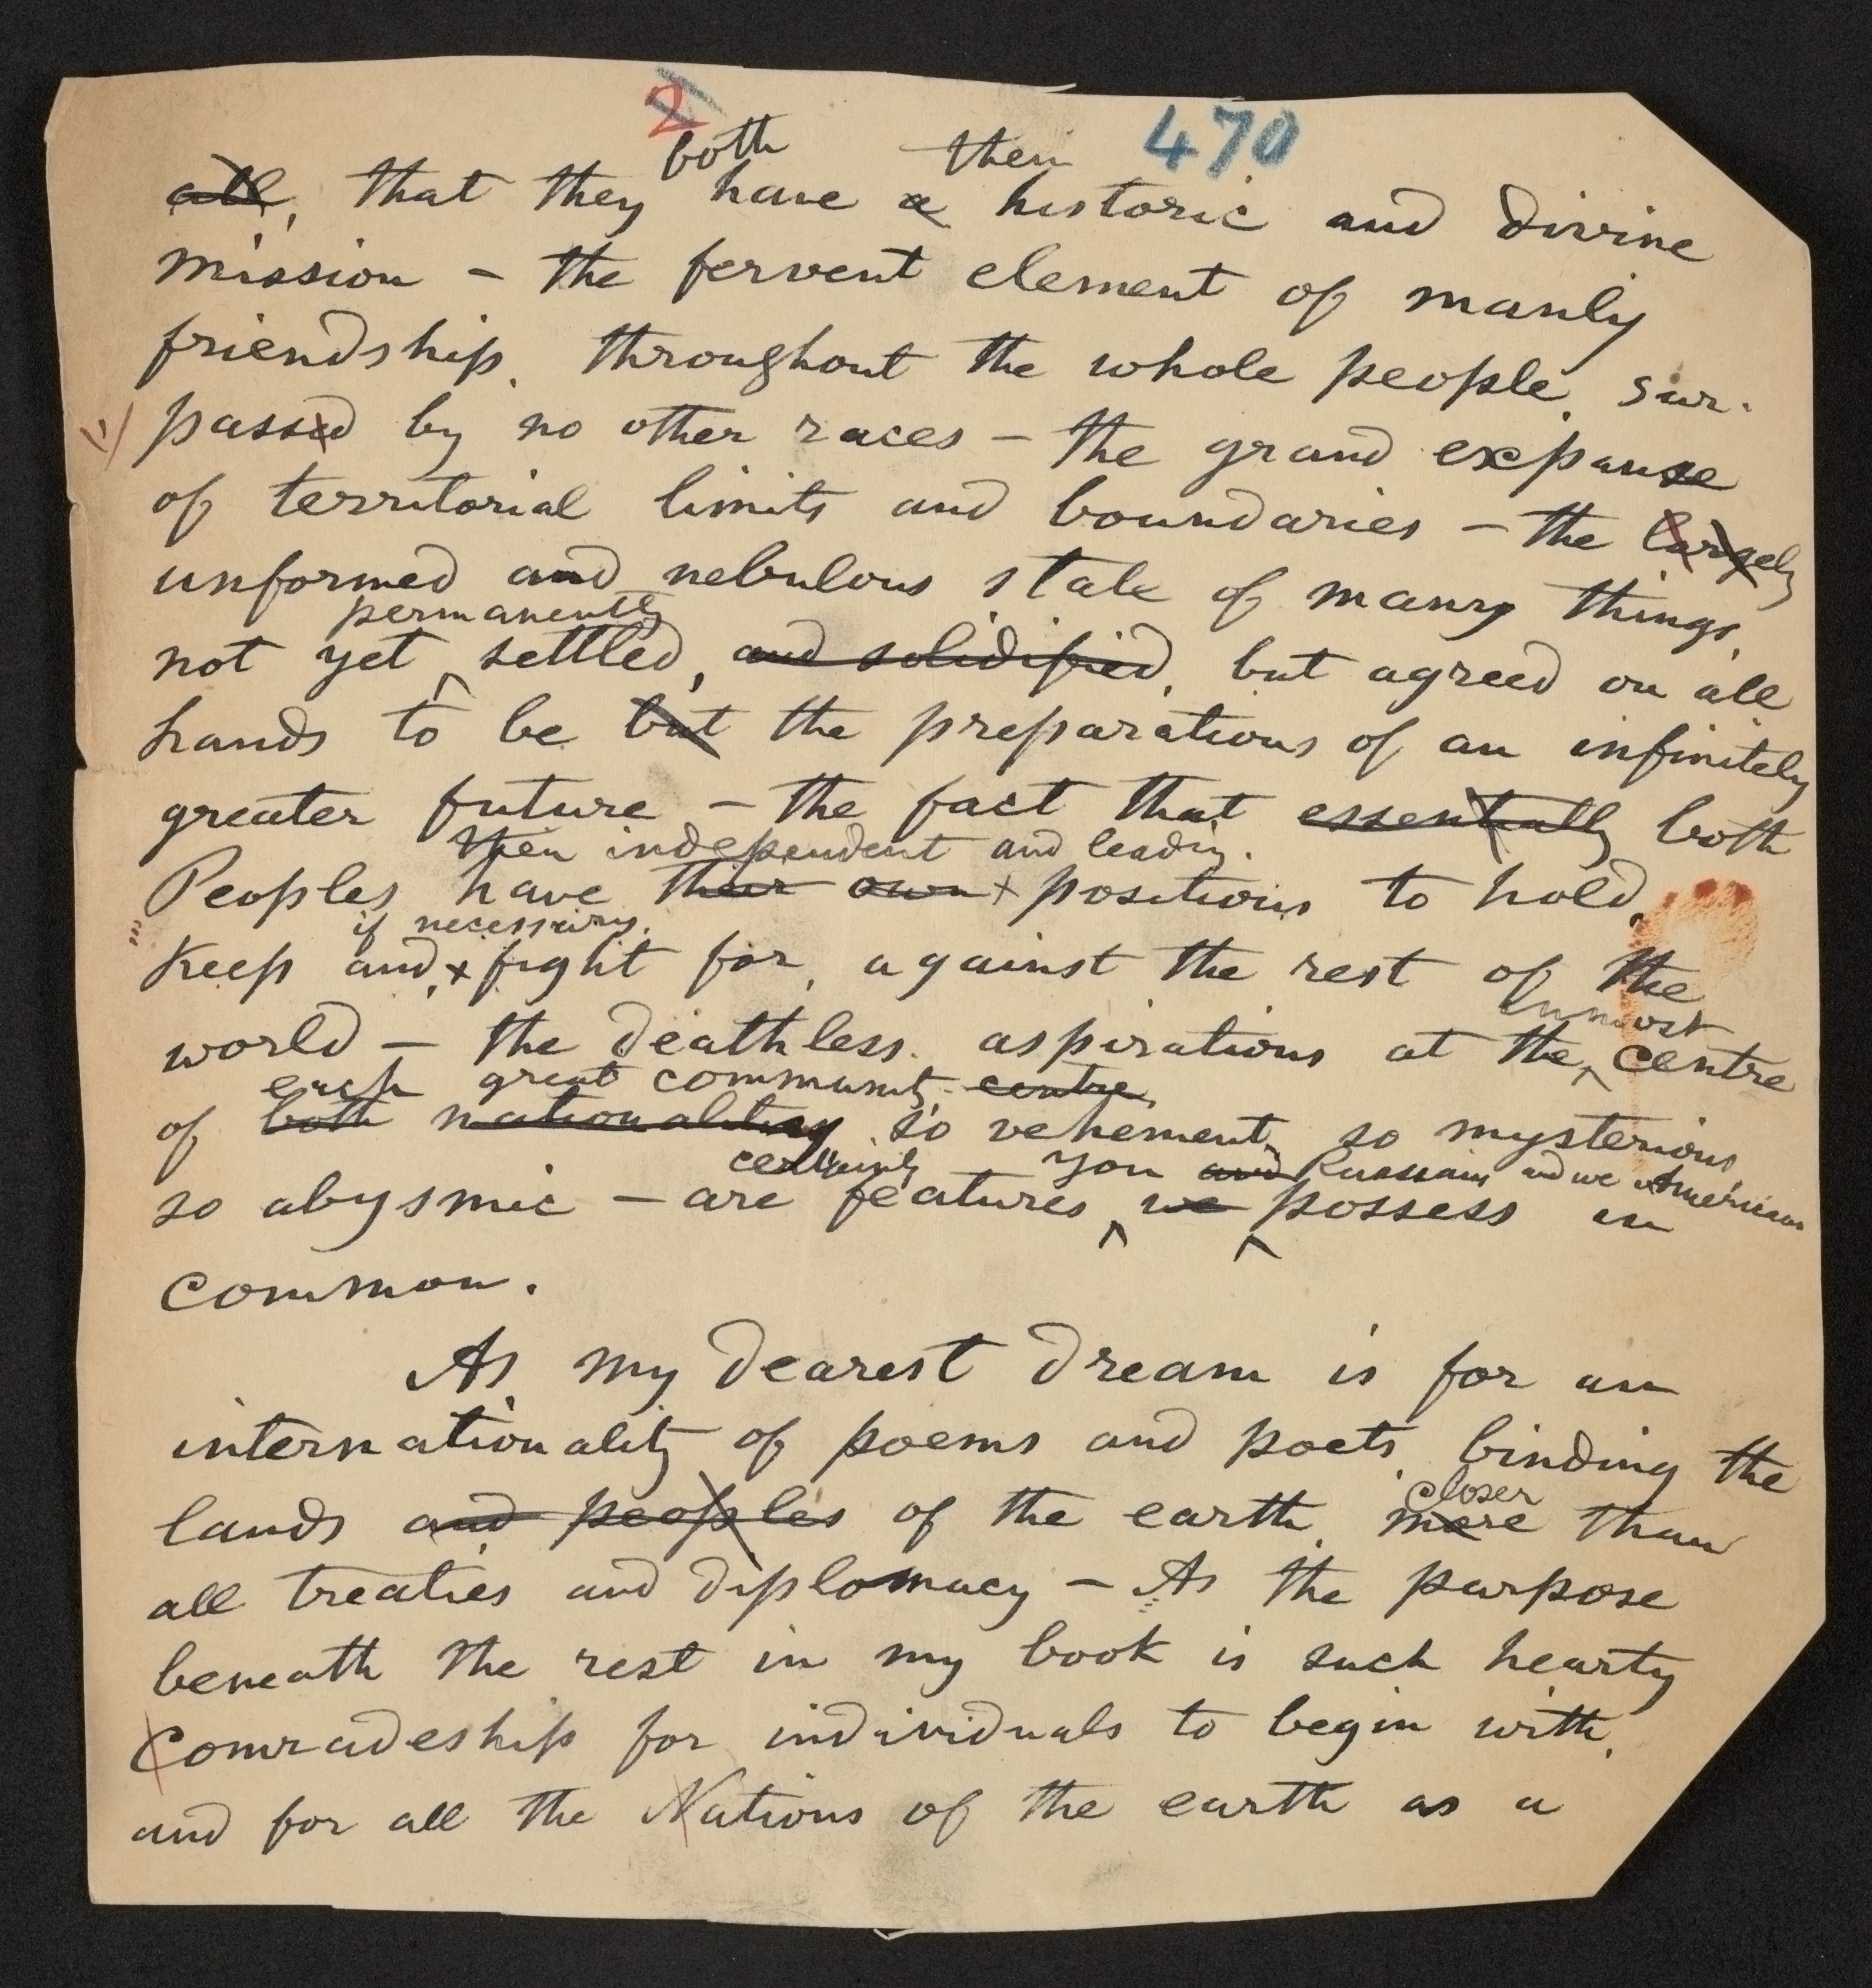 2 470
both their
all, that they have a historic and divine
mission – the fervent element of manly
friendship, throughout the whole people, sur-
passed by no other races – the grand expanse
of territorial limits and boundaries – the largely
unformed and nebulous state of many things,
permanently
not yet settled, and solidified, but agreed on all
hands to be but the preparations of an infinitely
greater future – the fact that essentially both
their independent and leading
Peoples have their own + positions to hold,
if necessary,
Keep and, + fight for, against the rest of the
inmost
world – the deathless aspirations at the centre
each great community, centre,
of both nationality so vehement, so mysterious,
certainly you and Russians and we Americans
so abysmic – are features we possess in
common.
As my dearest dream is for an
internationality of poems and poets, binding the
closer
lands and peoples of the earth, more than
all treaties and diplomacy – As the purpose
beneath the rest in my book is such hearty
Comradeship for individuals to begin with,
and for all the Nations of the earth as a